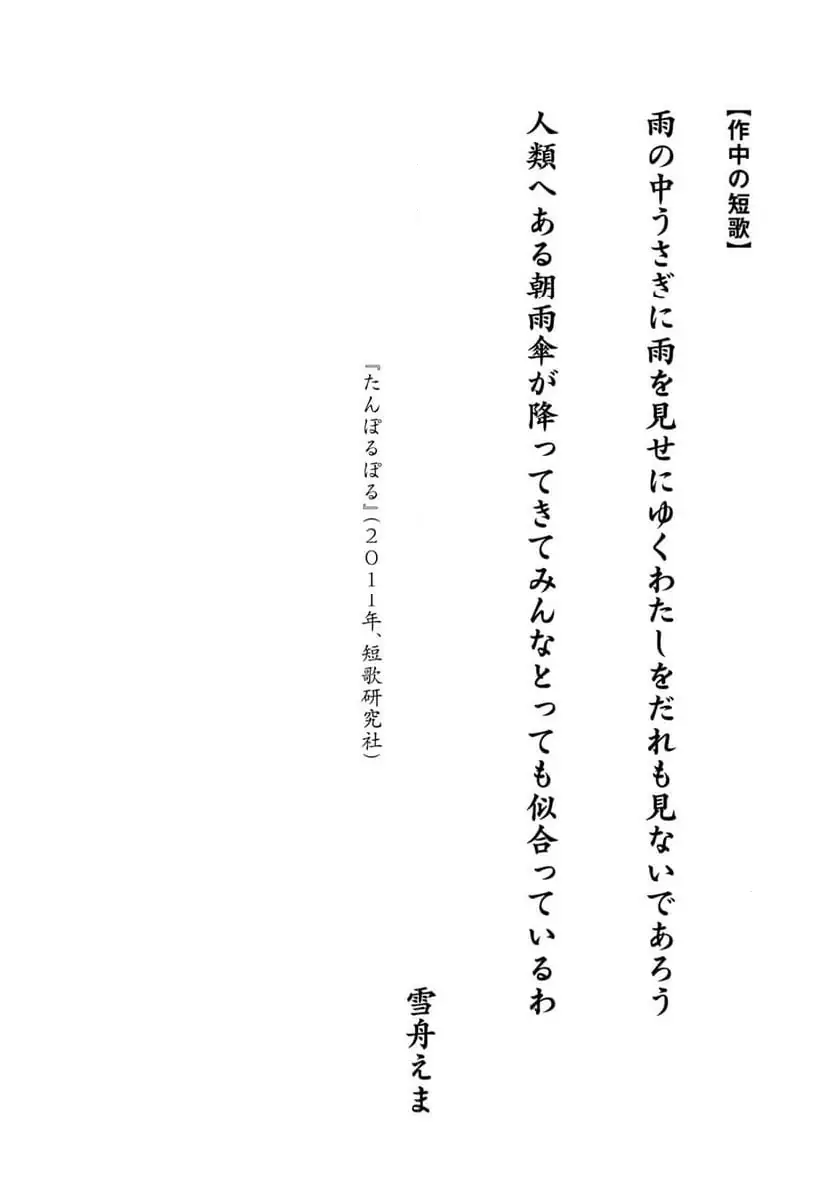 【作中の短歌】
雨の中うさぎに雨を見せにゆくわたしをだれも見ないであろう
人類へある朝雨傘が降ってきてみんなとっても似合っているわ
雪舟えま
『たんぽるぽる』(2011年、短歌研究社)